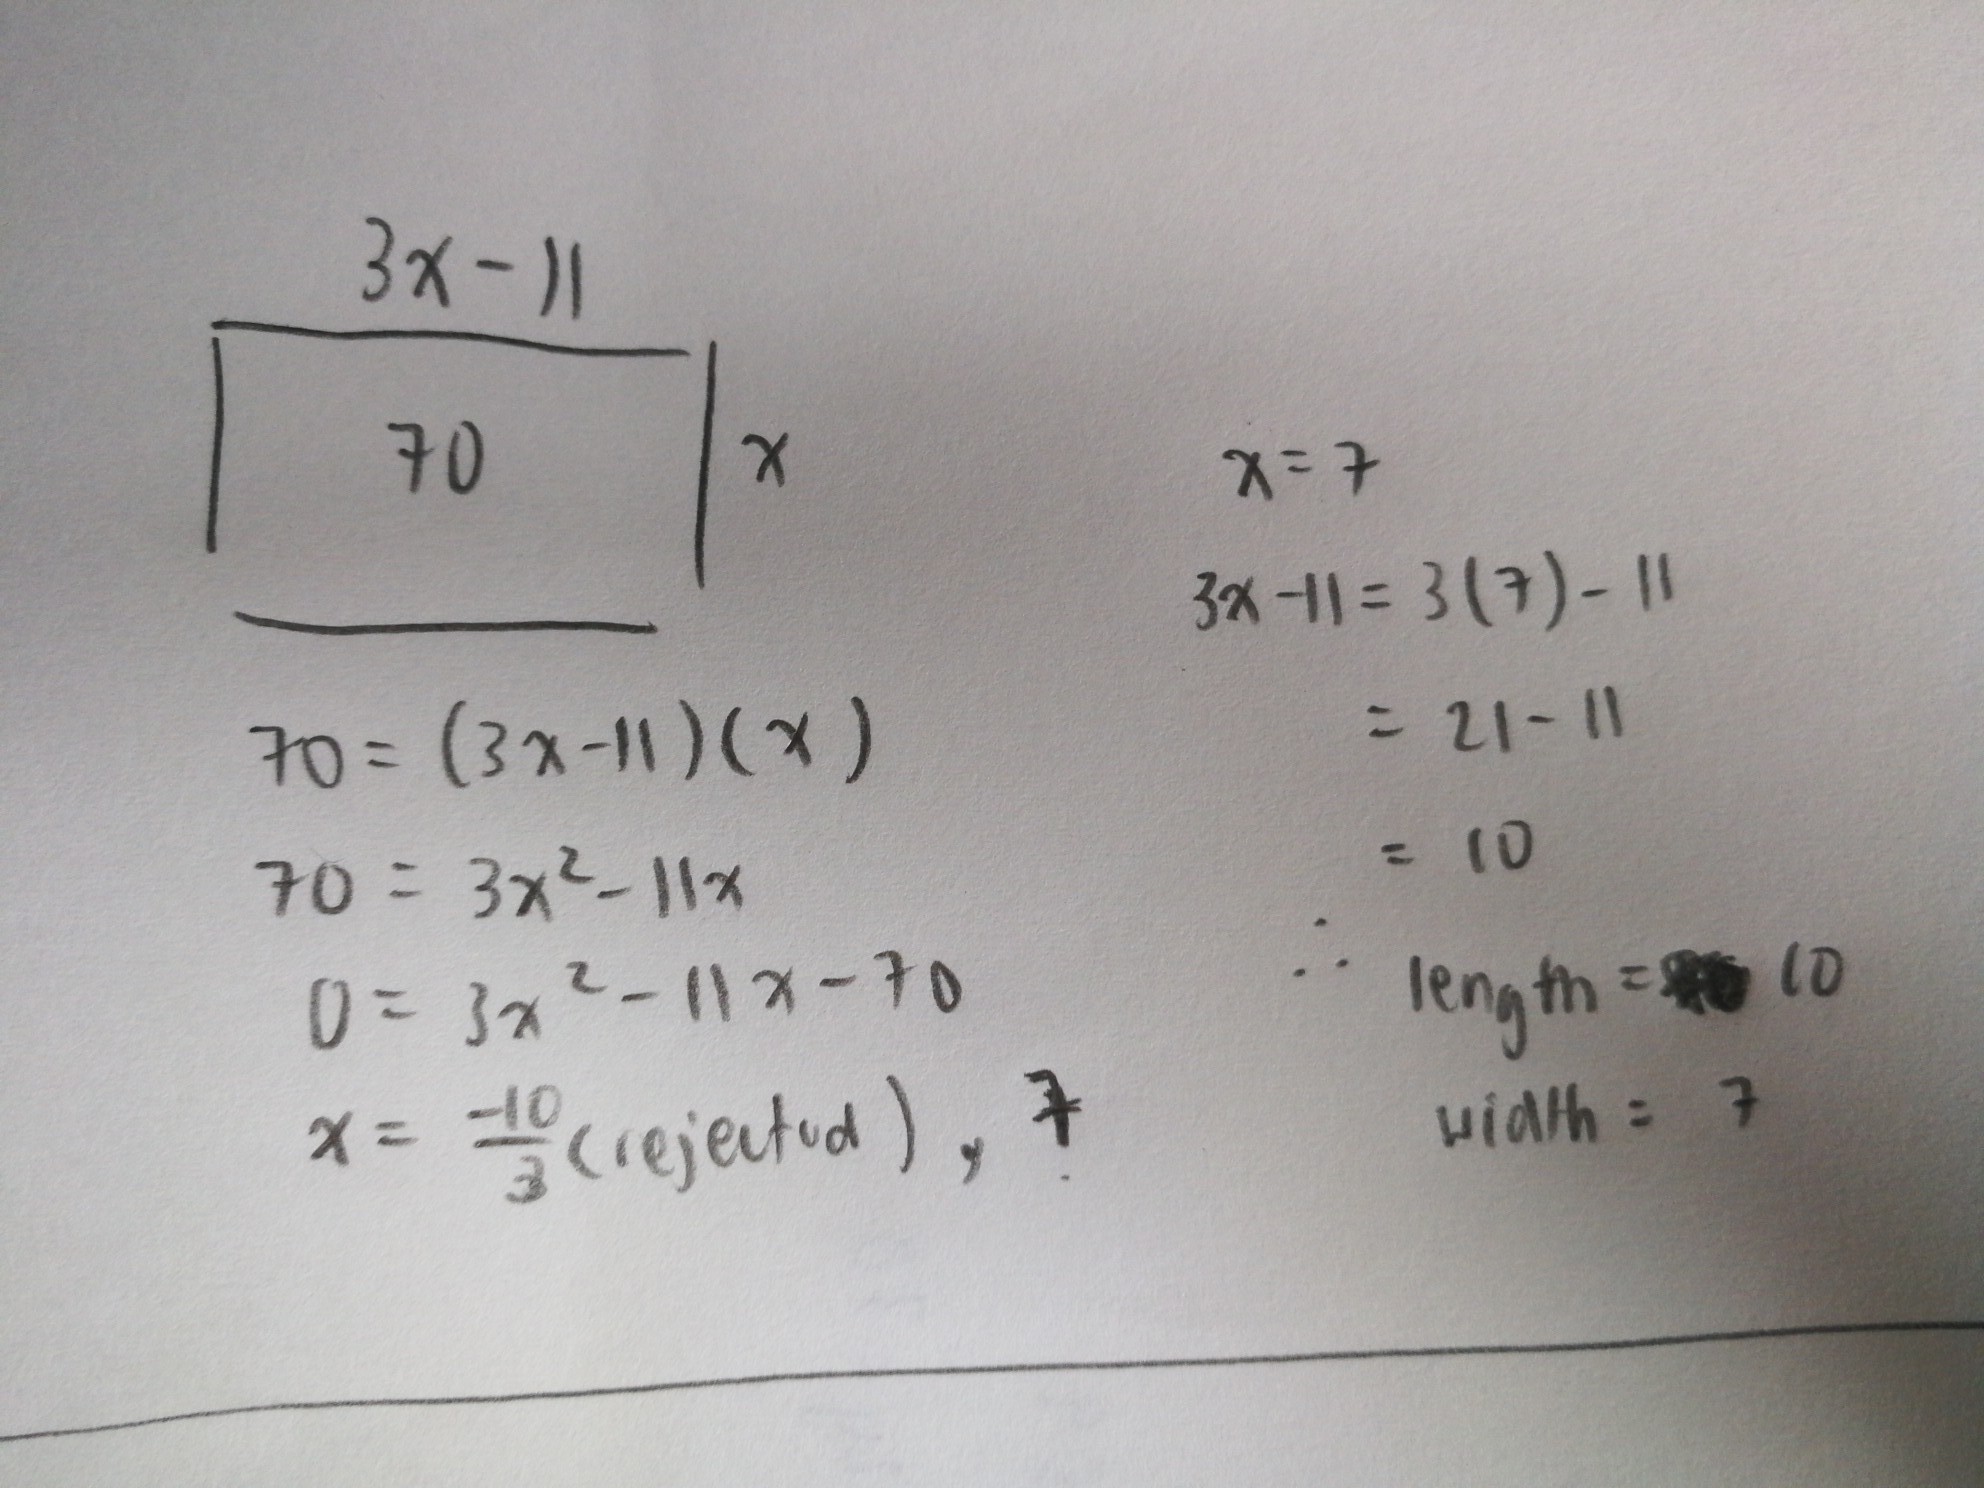 3x-11
70
x
70 = (3x-11)(x)
70 = 3x²-11x
0 = 3x²-11x-70
x = -10/3 (rejected), 7
x = 7
3x-11 = 3(7)-11
= 21-11
= 10
∴ length = 10
width = 7